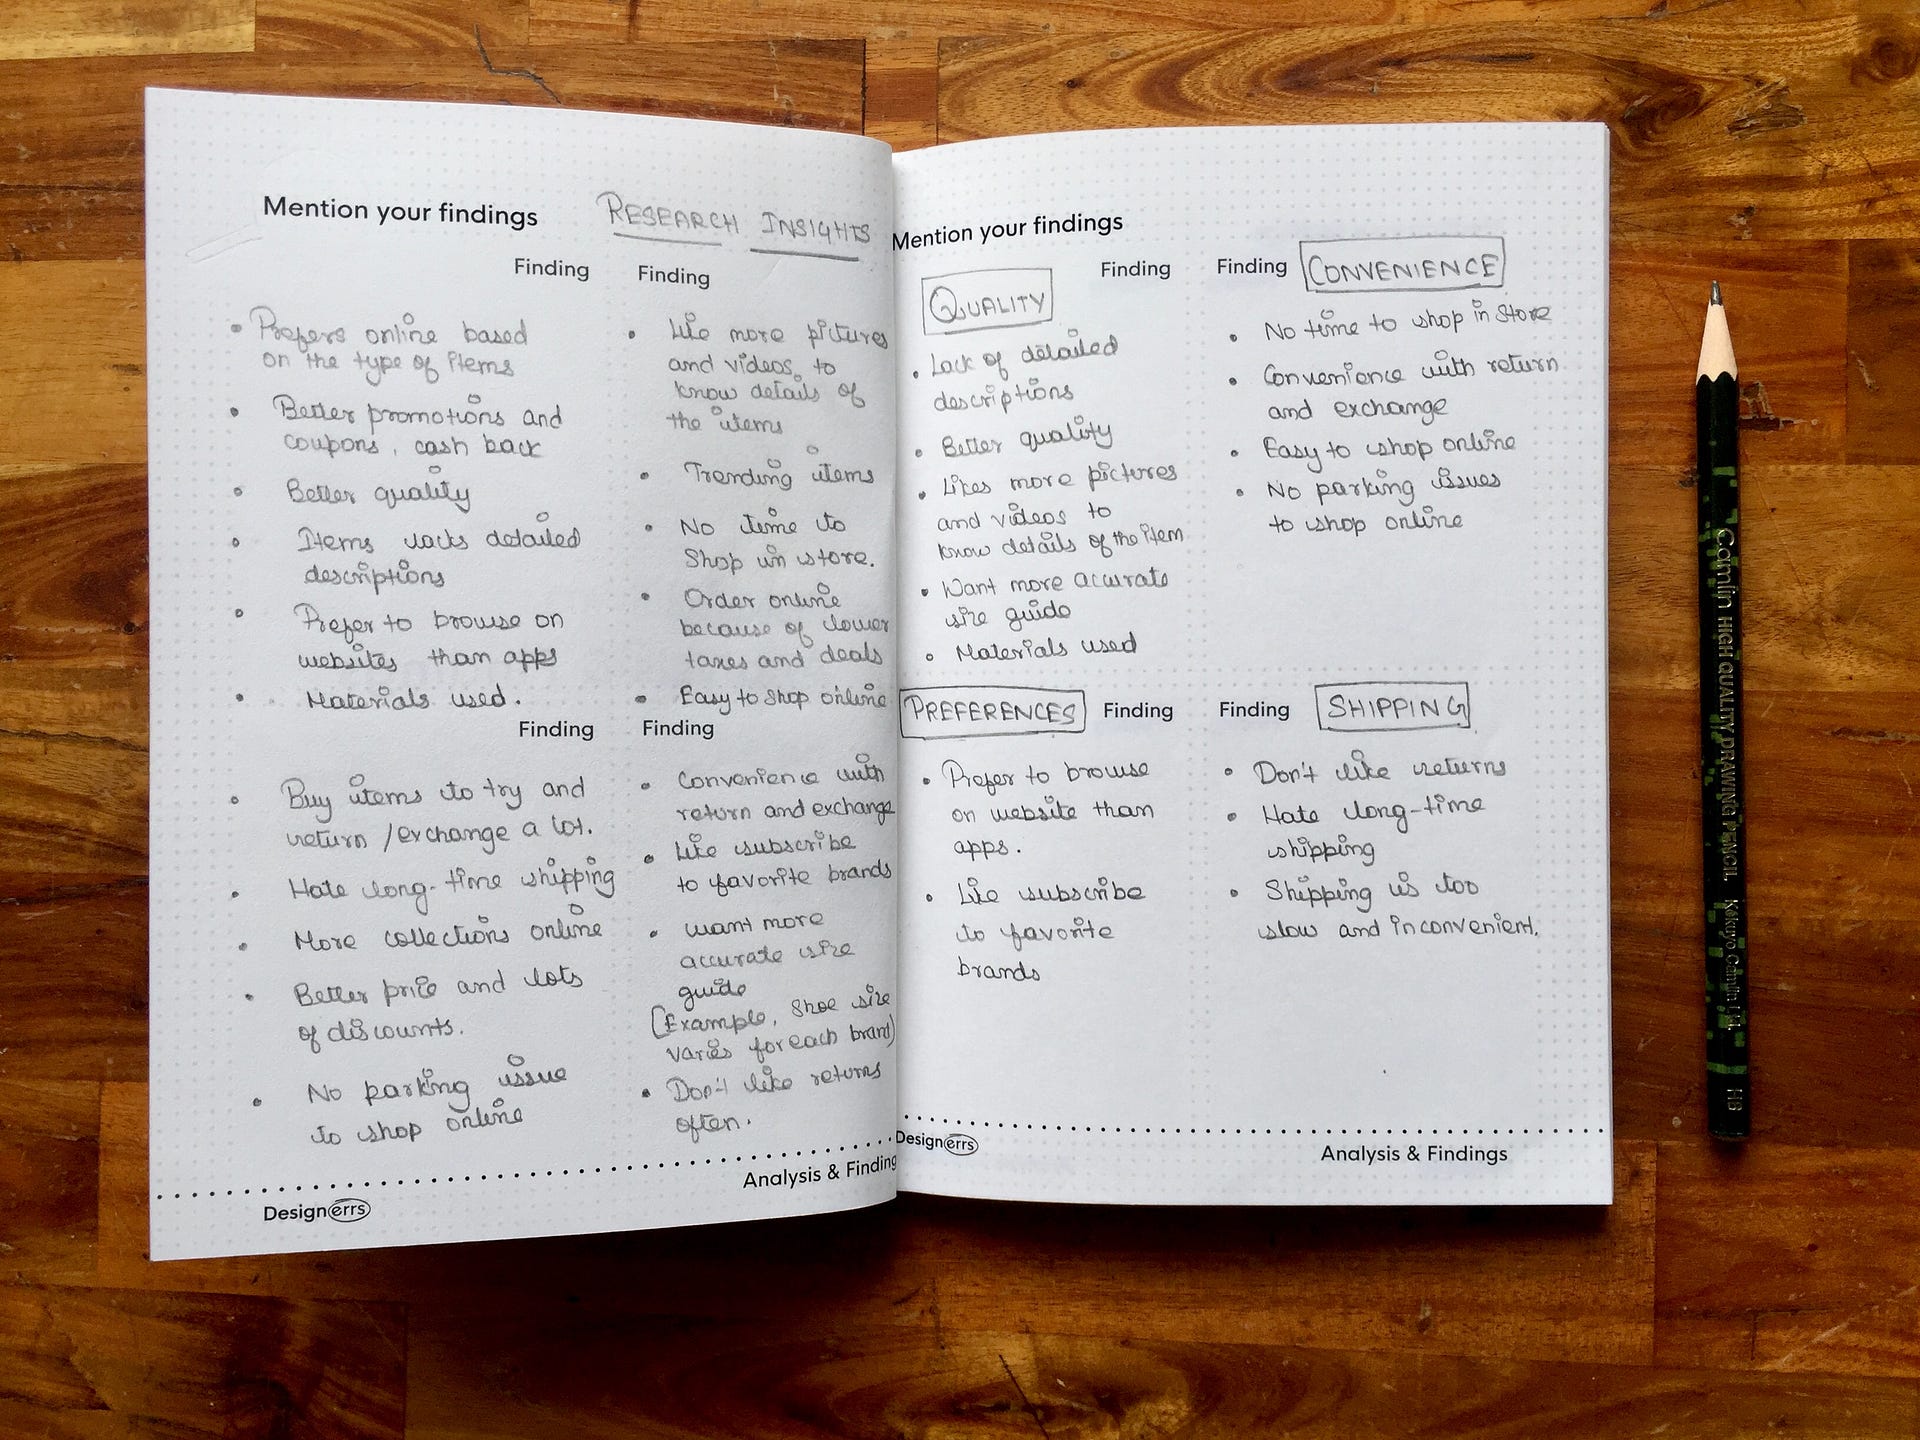 Mention your findings
RESEARCH INSIGHTS
Finding
• Prefers online based
on the type of items
• Better promotions and
coupons, cash back
• Better quality
• Items lacks detailed
descriptions
• Prefer to browse on
websites than apps
• Materials used.
Finding
• Like more pictures
and videos, to
know details of
the items
• Trending items
• No time to
Shop in store.
• Order online
because of lower
taxes and deals
• Easy to shop online
Finding
• Buy items to try and
return / exchange a lot.
• Hate long-time shipping
• More collections online
• Better price and lots
of discounts.
• No parking issue
to shop online
Finding
• Convenience with
return and exchange
• Like subscribe
to favorite brands
• want more
accurate size
guide
(Example, Shoe size
varies for each brand)
• Don't like returns
often.
Analysis & Finding
Designerrs
Mention your findings
QUALITY
Finding
• Lack of detailed
descriptions
• Better quality
• Likes more pictures
and videos to
know details of the item
• Want more accurate
size guide
• Materials used
Finding
CONVENIENCE
• No time to shop in Store
• Convenience with return
and exchange
• Easy to shop online
• No parking issues
to shop online
PREFERENCES
Finding
• Prefer to browse
on website than
apps.
• Like subscribe
to favorite
brands
Finding
SHIPPING
• Don't like returns
• Hate long-time
shipping
• Shipping is too
slow and inconvenient.
Designerrs
Analysis & Findings
Camlin HIGH QUALITY DRAWING PENCIL. Kokuyo Camlin Ltd HB